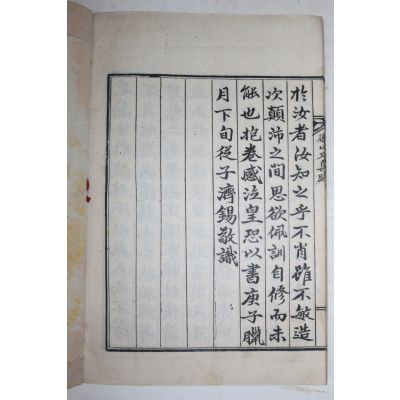 於汝者汝知之乎不肖雖不敏造
次顛沛之間思欲佩訓自修而未
能也抱卷感泣皇恐以書庚子臘
月下旬從子濟錫敬識